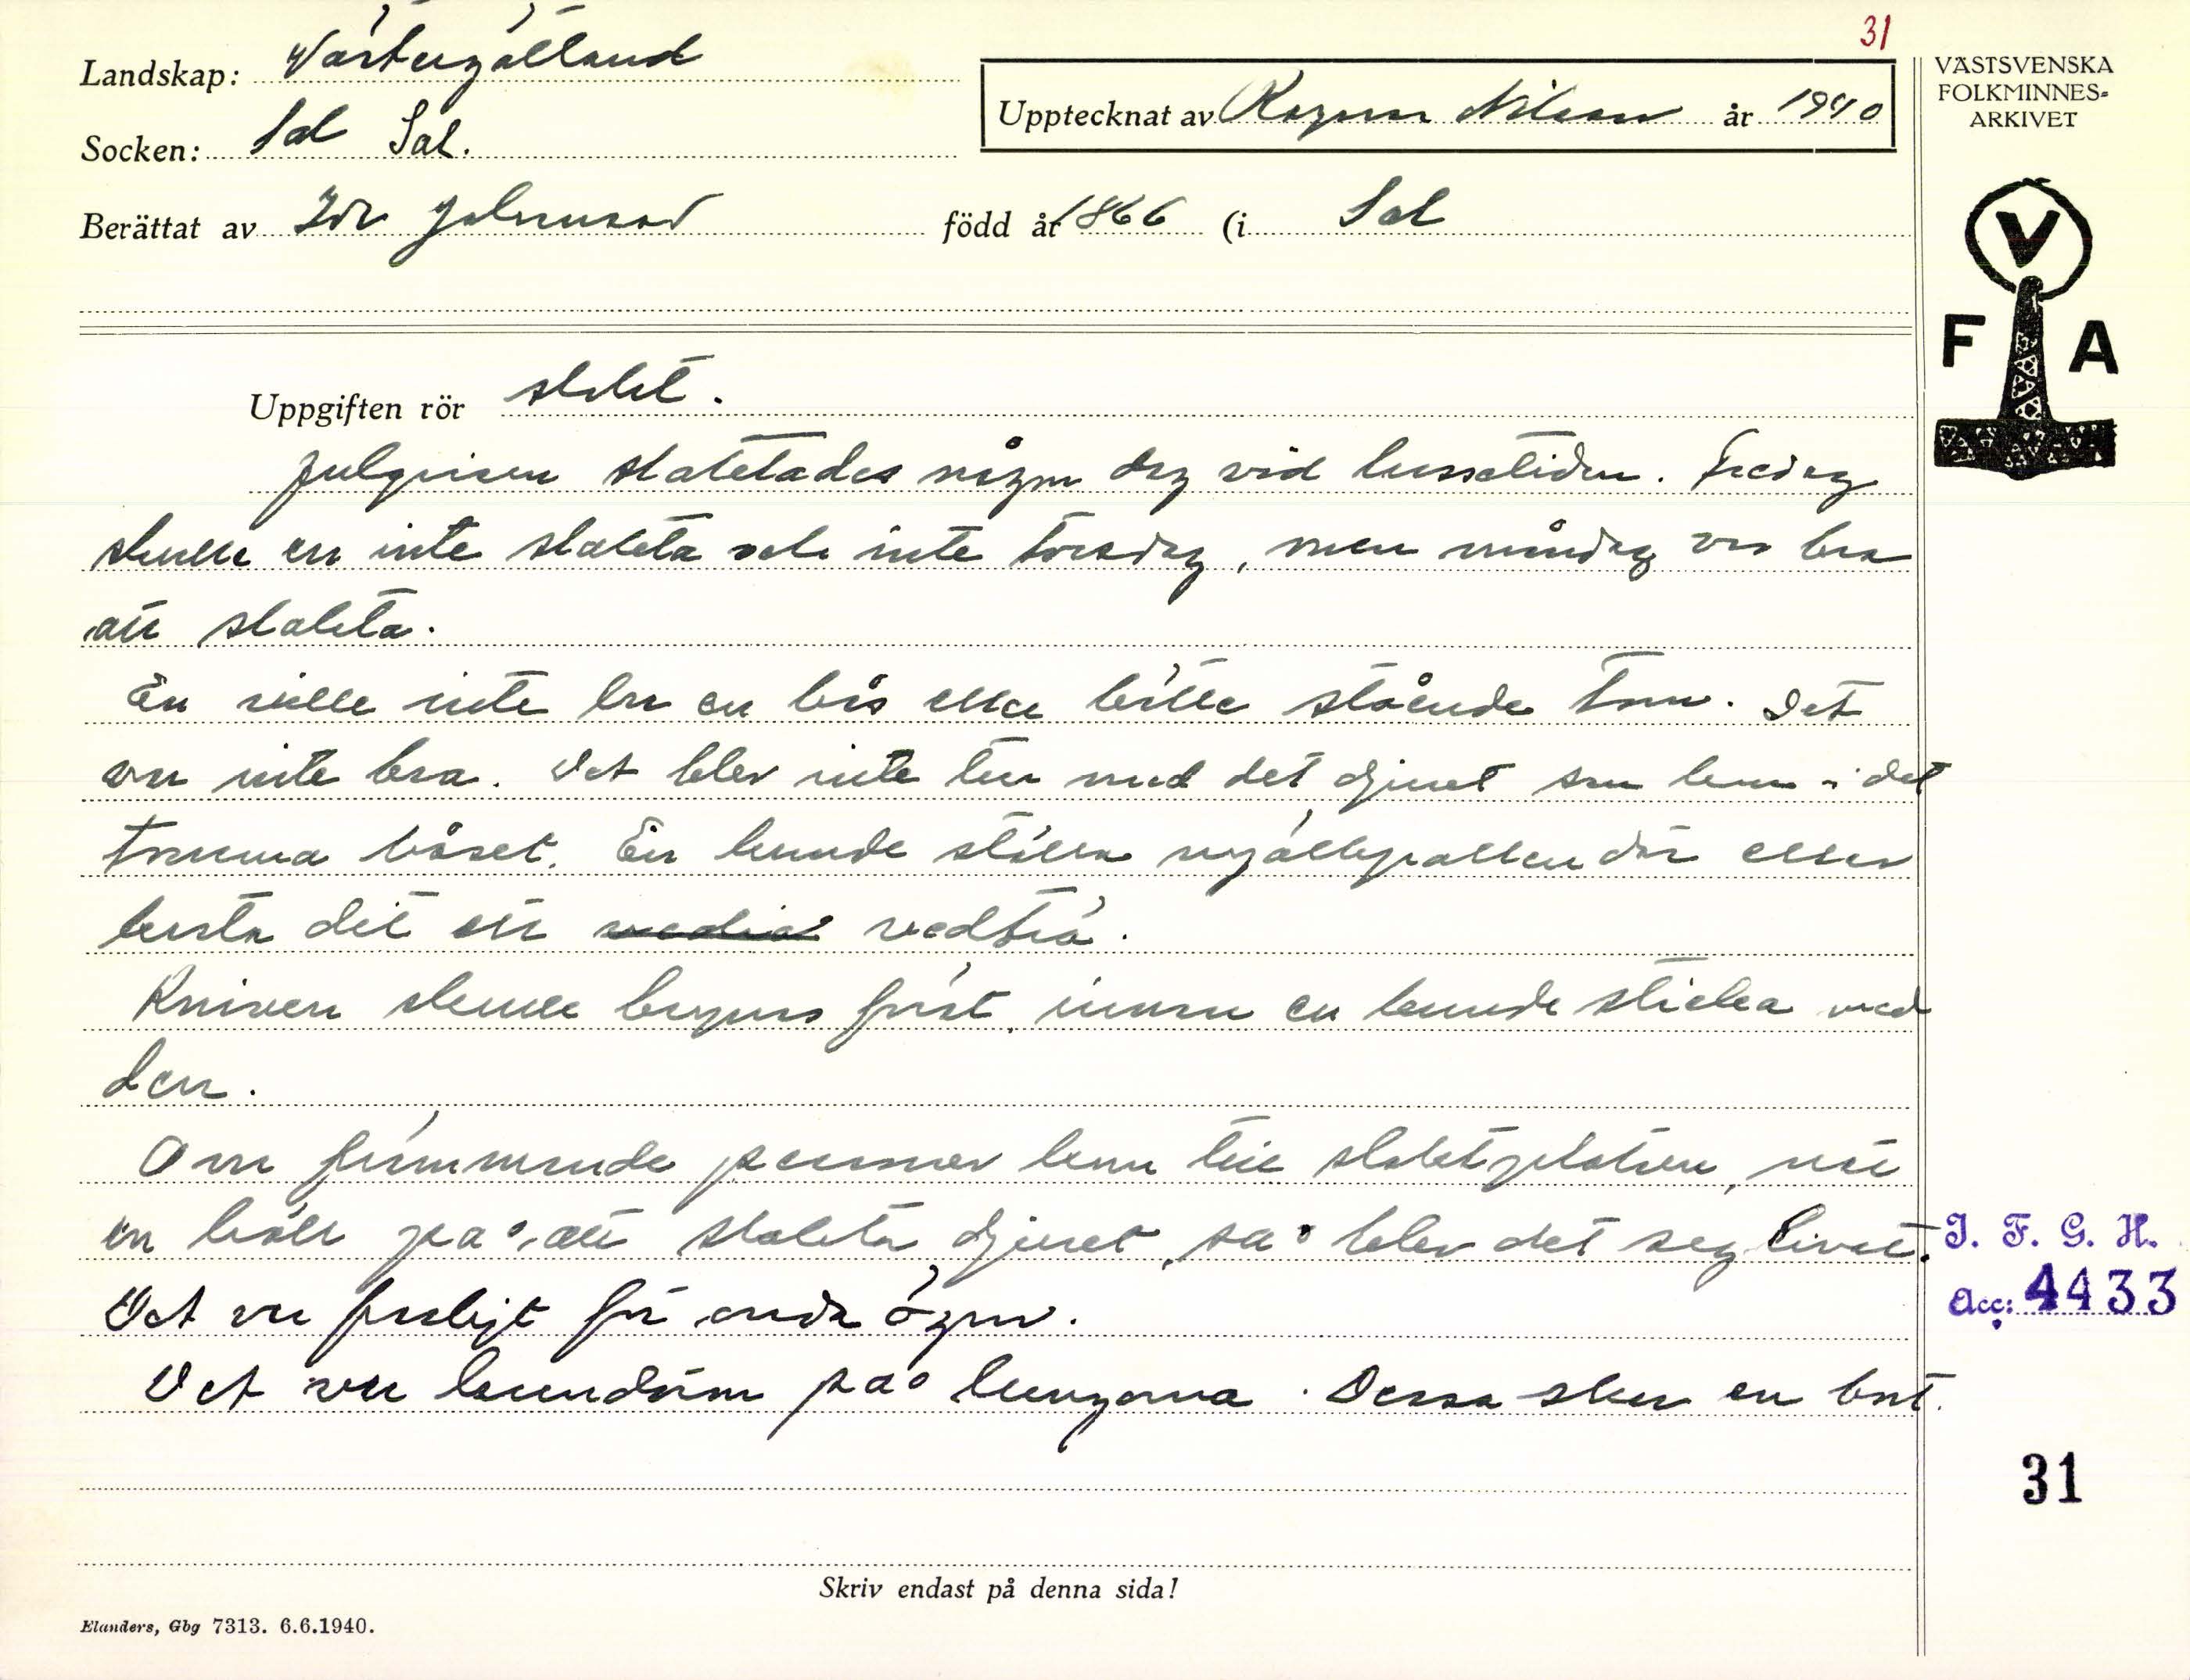 31
Landskap: Västergötland
Socken: Sal Sal.
Upptecknat av Ragnar Nilsson år 1940
Berättat av Ida Johansson född år 1866 (i Sal
VÄSTSVENSKA
FOLKMINNES-
ARKIVET
V
F A
Uppgiften rör slakt.
Julgrisen slaktades någon dag vid lussetiden. Fredag
skulle en inte slakta och inte torsdag, men måndag var bra
att slakta.
En ville inte ha en bås eller kätte stående tom. Det
var inte bra. Det blev inte tur med det djuret som kom i det
tomma båset. En kunde ställa mjölkpallen där eller
kasta dit ett vedträ.
Kniven skulle begnas först innan en kunde sticka med
den.
Om främmande personer kom till slaktplatsen, när
en höll på att slakta djuret, så blev det seglivat.
Det var farligt för onda ögon.
Det var hundöron på lungorna. Dessa skar en bort.
I. F. G. H.
Acc: 4433
31
Skriv endast på denna sida!
Elanders, Gbg 7313. 6.6.1940.